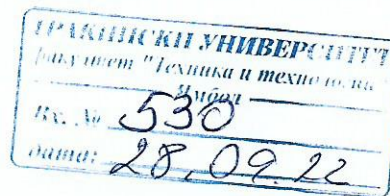 ТРАКИЙСКИ УНИВЕРСИТЕТ
факултет "Техника и технологии"
Ямбол
Вх. № 530
дата: 28.09.22